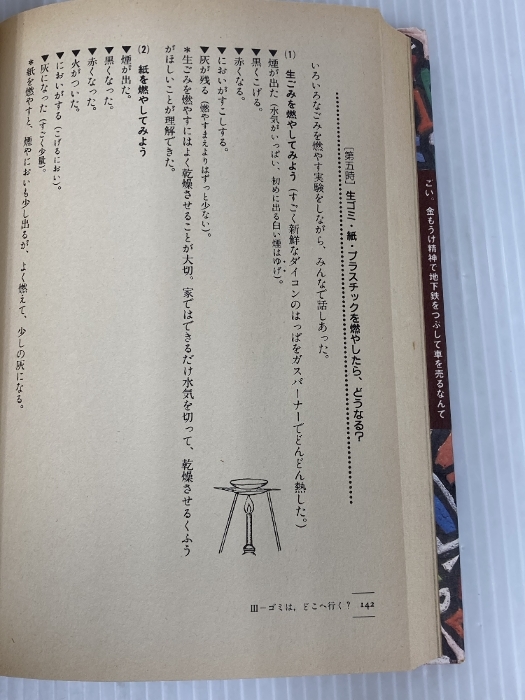 [第五時] 生ゴミ・紙・プラスチックを燃やしたら、どうなる?
いろいろなごみを燃やす実験をしながら、みんなで話しあった。
(1) 生ごみを燃やしてみよう (すごく新鮮なダイコンのはっぱをガスバーナーでどんどん熱した。)
▼煙が出た (水気がいっぱい、初めに出る白い煙はゆげ)。
▼黒くこげる。
▼赤くなる。
▼においがすこしする。
▼灰が残る (燃やすまえよりはずっと少ない)。
*生ごみを燃やすにはよく乾燥させることが大切。家ではできるだけ水気を切って、乾燥させるくふう
がほしいことが理解できた。
(2) 紙を燃やしてみよう
▼煙が出た。
▼黒くなった。
▼赤くなった。
▼火がついた。
▼においがする (こげるにおい)。
▼灰になった (すごく少量)。
*紙を燃やすと、煙やにおいも少し出るが、よく燃えて、少しの灰になる。
III—ゴミは、どこへ行く? 142
こい。金もうけ精神で地下鉄をつぶして車を売るなんて